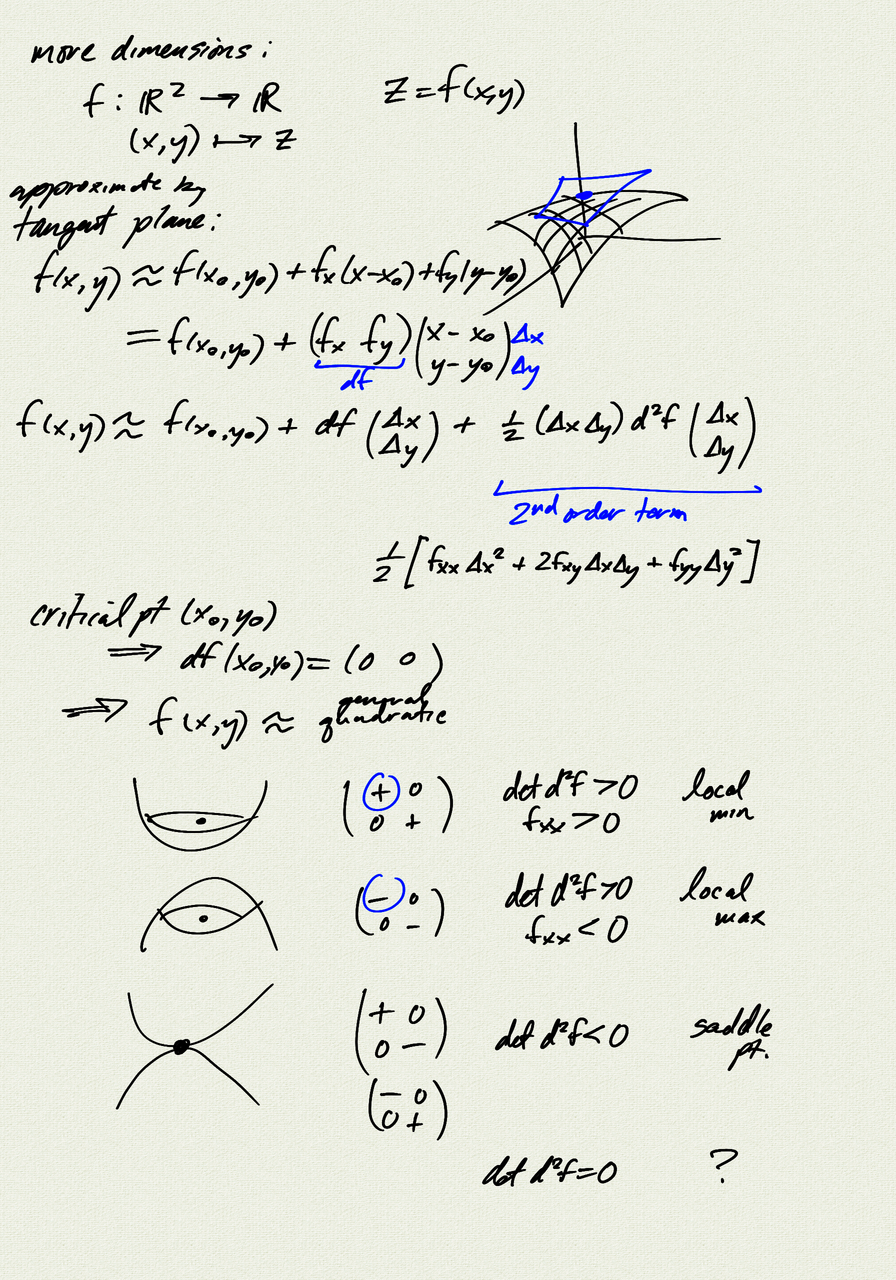 more dimensions:
f : ℝ² → ℝ    z = f(x,y)
(x,y) ↦ z
approximate by
tangent plane:
f(x,y) ≈ f(x₀,y₀) + fₓ(x−x₀) + f_y(y−y₀)
= f(x₀,y₀) + (fₓ f_y) (x−x₀ Δx
y−y₀) Δy
df
f(x,y) ≈ f(x₀,y₀) + df (Δx Δy) + ½ (Δx Δy) d²f (Δx Δy)
2nd order term
½ [fₓₓ Δx² + 2fₓy ΔxΔy + f_yy Δy²]
critical pt (x₀,y₀)
⟹ df(x₀,y₀) = (0 0)
⟹ f(x,y) ≈ general quadratic
(+ 0    det d²f > 0    local
0 +)    fₓₓ > 0    min
(− 0    det d²f > 0    local
0 −)    fₓₓ < 0    max
(+ 0
0 −)    det d²f < 0    saddle pt.
(− 0
0 +)
det d²f = 0    ?